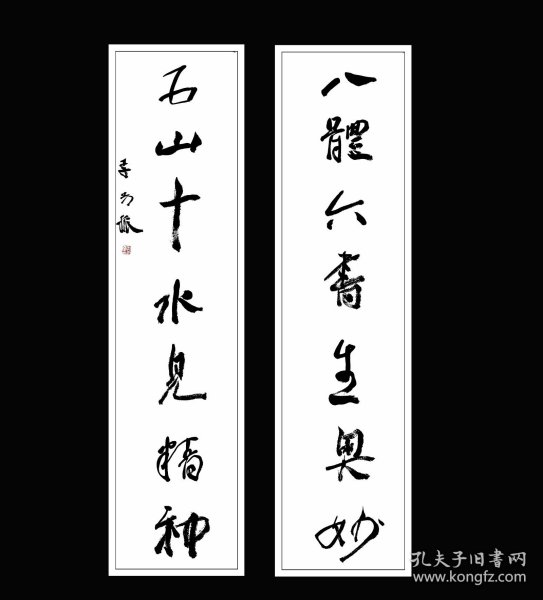 八體六書生奧妙
五山十水見精神
孔夫子旧书网
www.kongfz.com